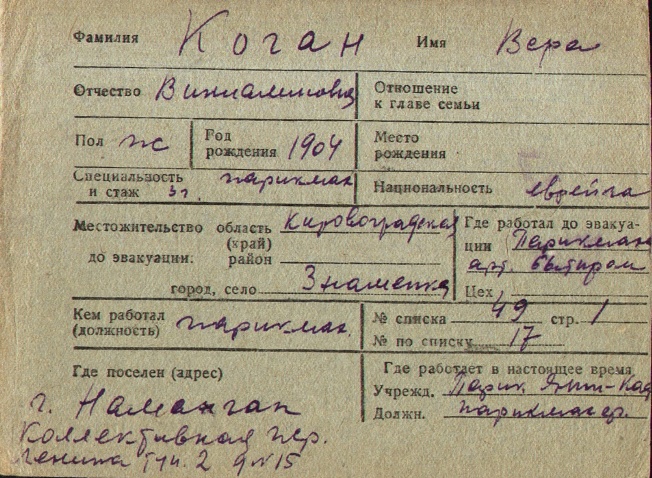 Фамилия Коган Имя Вера
Отчество Винламиновна Отношение к главе семьи
Пол ж Год рождения 1904 Место рождения
Специальность и стаж 3 г. парикмах Национальность еврейка
Местожительство область (край) Кировоградская
до эвакуации: район
город, село Знаменка
Где работал до эвакуации Парикмах
арт.
Цех
Кем работал (должность) парикмах.
№ списка 49 стр. 1
№ по списку 17
Где поселен (адрес)
г. Наманган
Коллективная пер.
Ленина 2 15
Где работает в настоящее время
Учрежд. Парик
Должн. парикмахер.